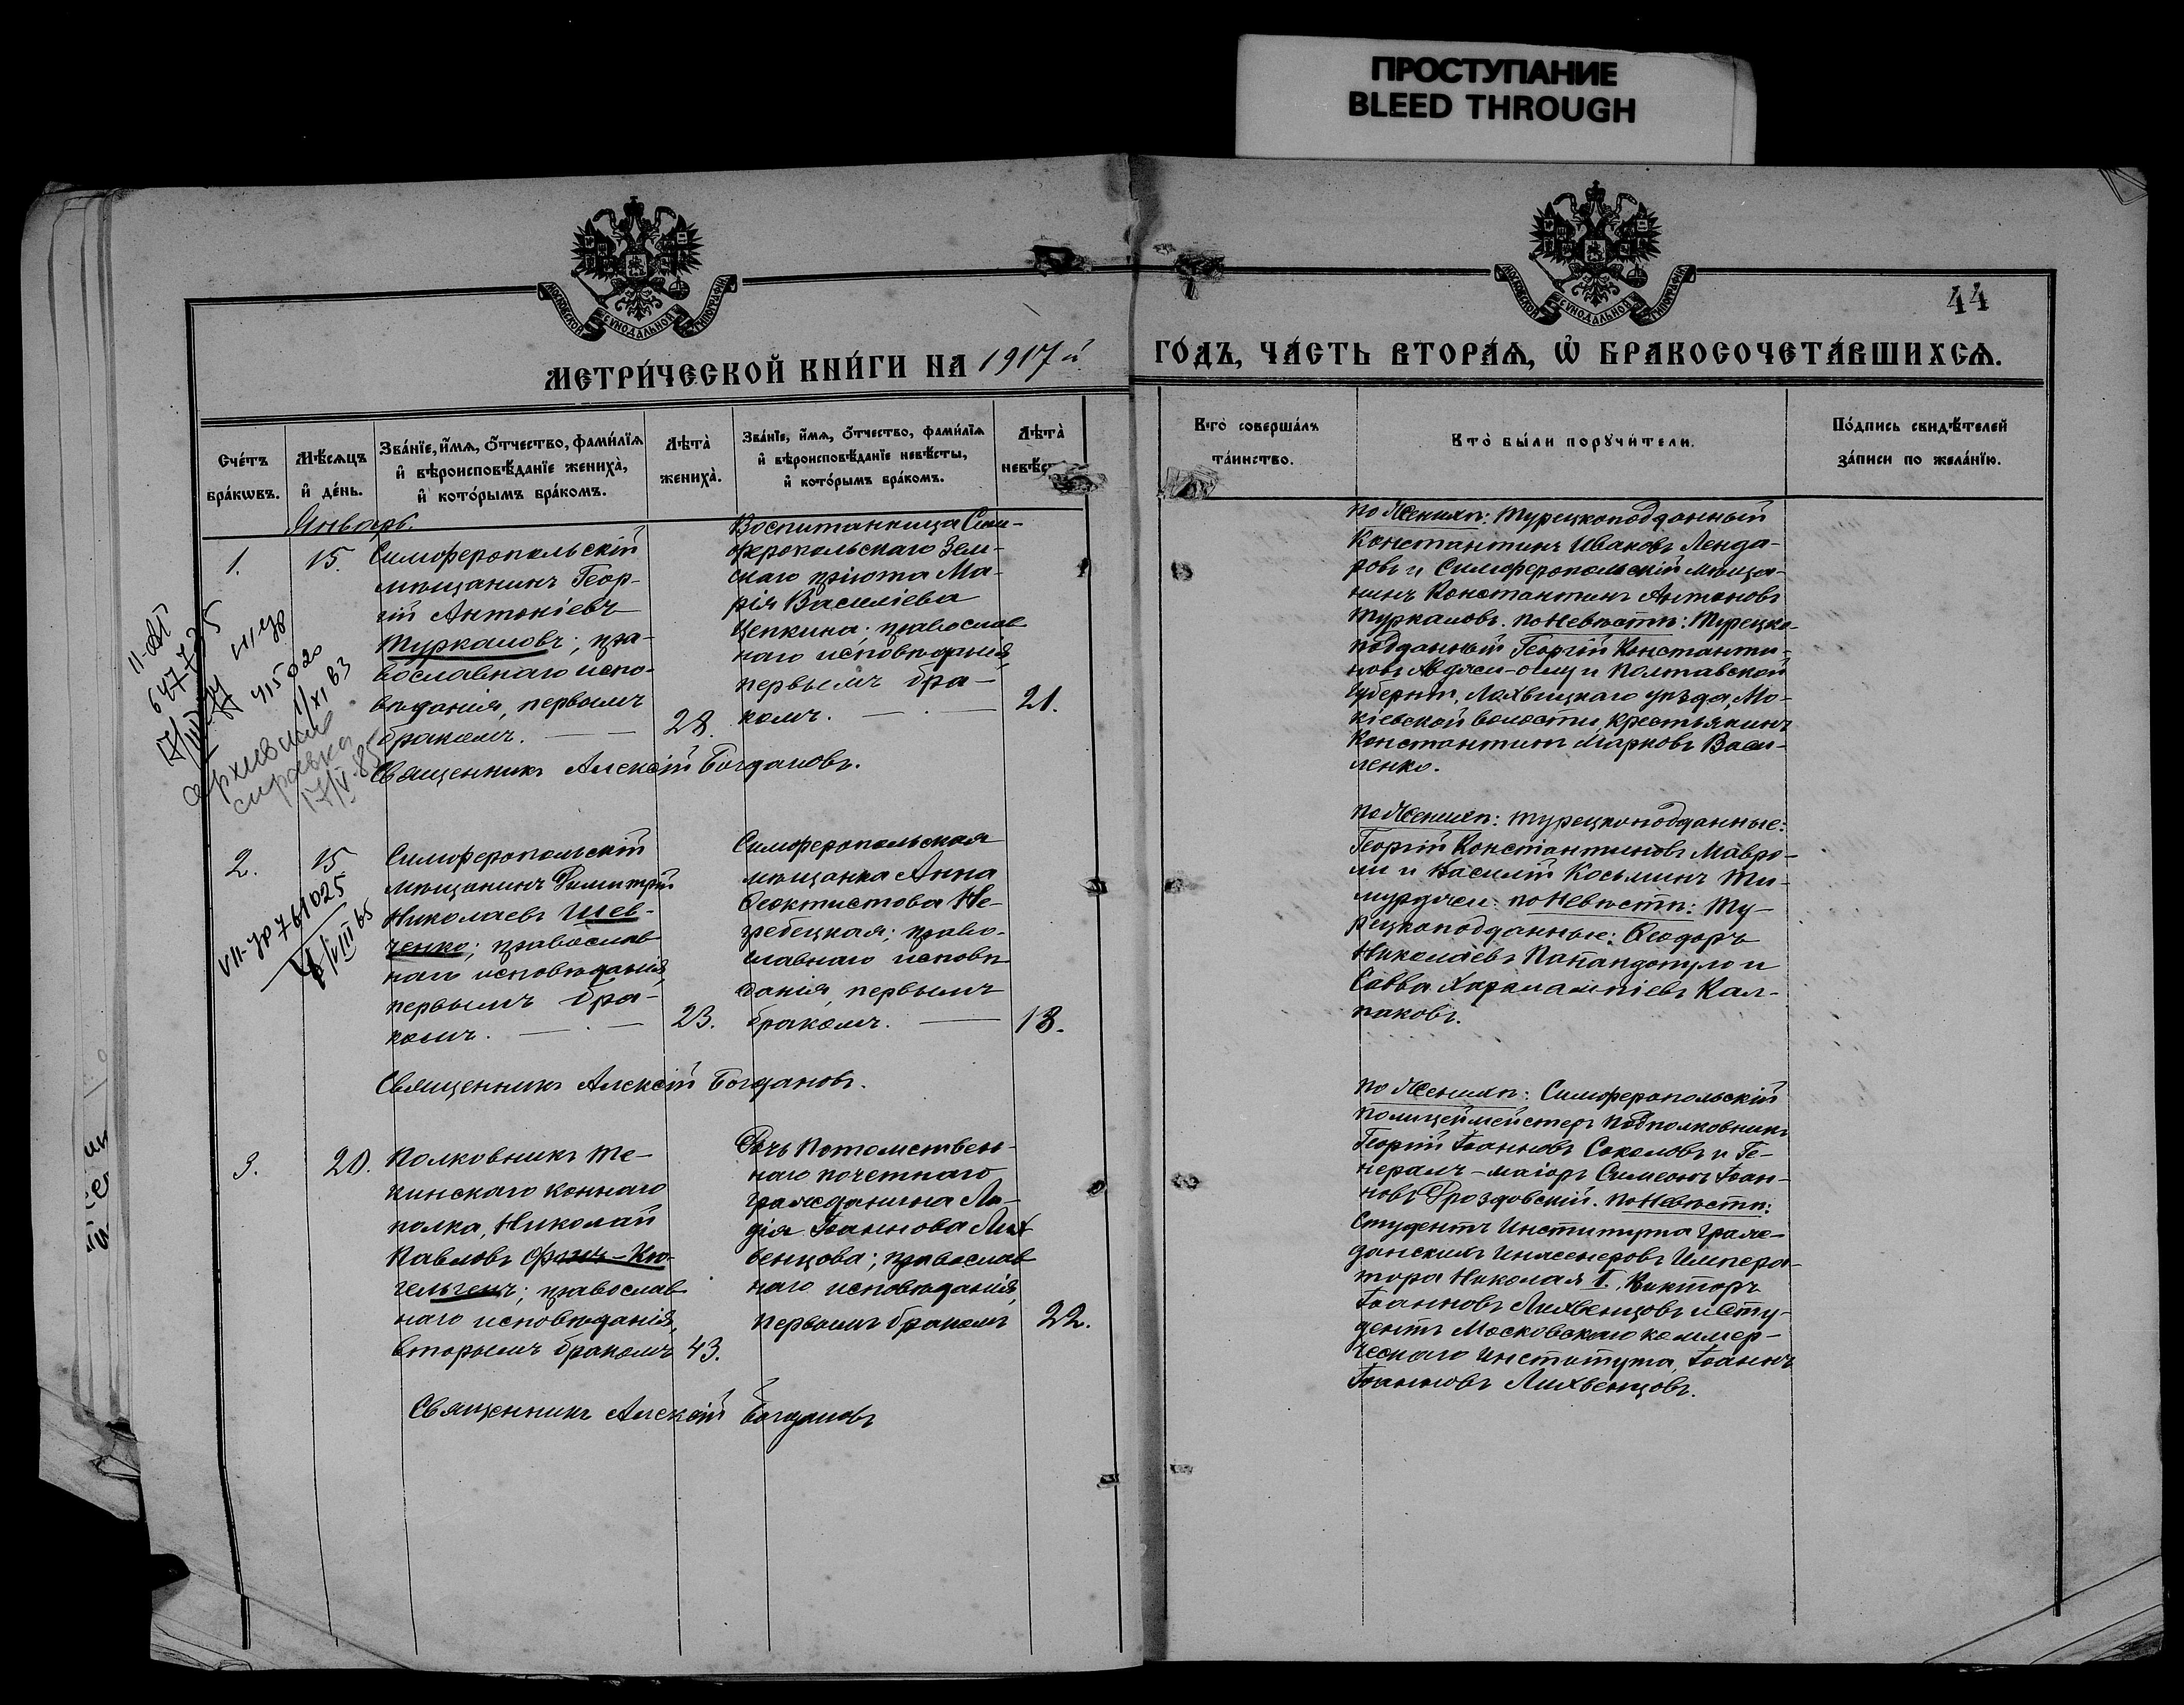 ПРОСТУПАНИЕ
BLEED THROUGH
МОСКОВСКОЙ СѴНОДАЛЬНОЙ ТИПОГРАФІИ
МОСКОВСКОЙ СѴНОДАЛЬНОЙ ТИПОГРАФІИ
44
МЕТРИ́ЧЕСКОЙ КНИ́ГИ НА 1917 й
ГО́ДЪ, ЧА́СТЬ ВТОРА́Ѧ, Ѡ҆ БРАКОСОЧЕТА́ВШИХСѦ.
Сче́тъ
бра́кѡвъ.
Мѣ́сѧцъ
и҆ де́нь.
Зва́нїе, и҆́мѧ, ѻ҆́тчество, фами́лїѧ
и҆ вѣроисповѣ́данїе жениха̀,
и҆ кото́рымъ бра́комъ.
Лѣта̀
жениха̀.
Зва́нїе, и҆́мѧ, ѻ҆́тчество, фами́лїѧ
и҆ вѣроисповѣ́данїе невѣ́сты,
и҆ кото́рымъ бра́комъ.
Лѣта̀
Кто̀ соверша́лъ
та́инство.
Кто̀ бы́ли порꙋчи́тели.
По́дпись свидѣ́телей
за́писи по жела́нїю.
Январь.
1.
15.
Симферопольскій
мѣщанинъ Геор-
гій Антоніевъ
Туркаловъ; пра-
вославнаго испо-
вѣданія, первымъ
бракомъ.
28.
Воспитанница Сим-
феропольскаго Зем-
скаго пріюта Ма-
рія Василіева
Цепкина; православ
наго исповѣданія,
первымъ бра-
комъ.
21.
Священникъ Алексій Богдановъ.
по Женихѣ: турецкоподданный
Константинъ Ивановъ Ленда-
ровъ и Симферопольскій мѣща-
нинъ Константинъ Антоновъ
Туркаловъ. по Невѣстѣ: Турецко-
подданный Георгій Константи-
новъ и Полтавской
губерніи, Лохвицкаго уѣзда, Мо-
кіевской волости, крестьянинъ
Константинъ Марковъ Васи-
ленко.
647735
415020
1/XI 63
архивная
справка
17/V-85
2.
15
Симферопольскій
мѣщанинъ Димитрій
Николаевъ Шев-
ченко; православ
наго исповѣданія,
первымъ бра-
комъ.
23.
Симферопольская
мѣщанка Анна
Феоктистова Не-
гребецкая; право-
славнаго исповѣ
данія, первымъ
бракомъ.
18.
Священникъ Алексій Богдановъ.
по Женихѣ: турецкоподданные:
Георгій Константиновъ Мавро-
ди и Василій Косьминъ
по Невѣстѣ: Ту-
рецкоподданные: Ѳеодоръ
Николаевъ Папандопуло и
Савва Харалампіевъ Кал-
паковъ.
VII-УР 761025
4/VIII 65
3.
20.
Полковникъ Те-
кинскаго коннаго
полка, Николай
Павловъ фонъ-Кю-
гельгенъ; православ
наго исповѣданія,
вторымъ бракомъ
43.
Дочь Потомствен-
наго почетнаго
гражданина Ли-
дія Іоаннова Лих
венцова; православ
наго исповѣданія,
первымъ бракомъ
22.
Священникъ Алексій Богдановъ
по Женихѣ: Симферопольскій
полицеймейстеръ Подполковникъ
Георгій Іоанновъ Соколовъ и Ге-
нералъ-маіоръ Симеонъ Іоан-
новъ Дроздовскій. по Невѣстѣ:
Студентъ Института Граж-
данскихъ Инженеровъ Импера-
тора Николая I. Викторъ
Іоанновъ Лихвенцовъ и Сту-
дентъ Московскаго коммер-
ческаго Института, Іоаннъ
Іоанновъ Лихвенцовъ.